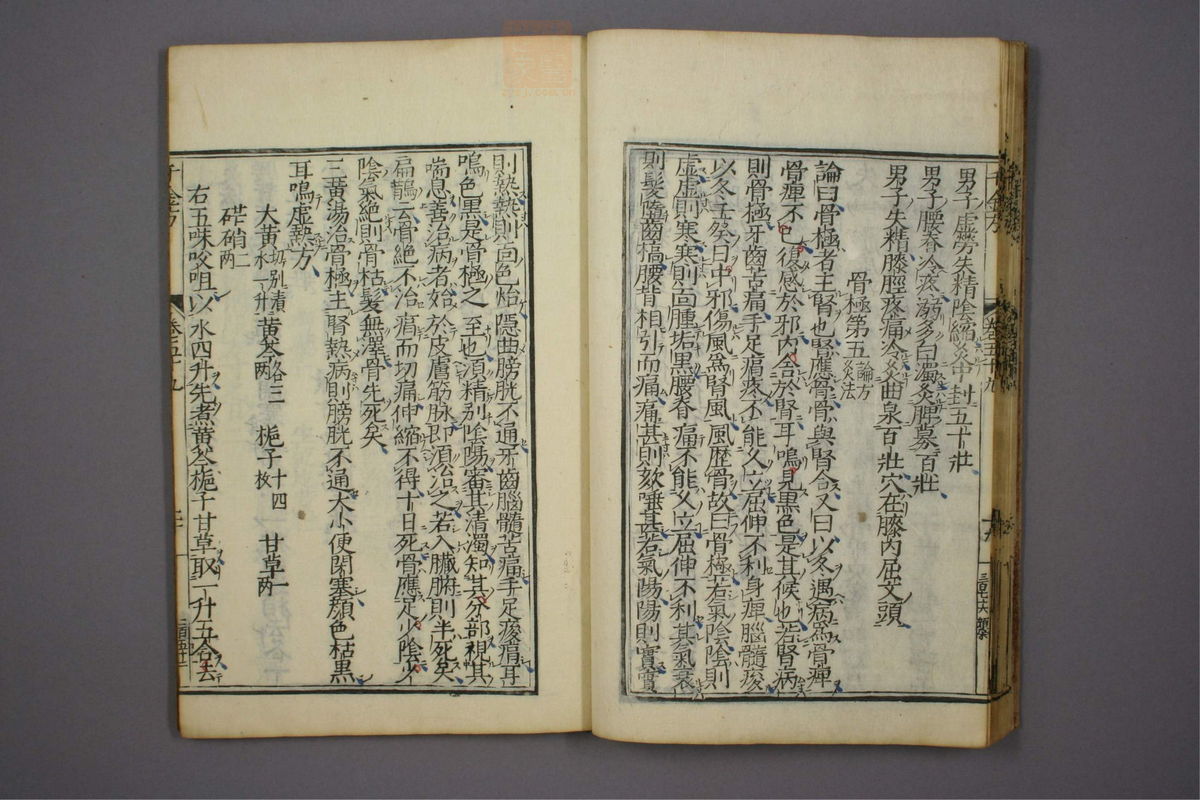 男子虛勞失精陰縮灸中封五十壯
男子腰脊冷疼溺多白濁灸脾募百壯
男子失精膝脛疼痛冷灸曲泉百壯穴在膝內屈文頭
骨極第五論方灸法
論曰骨極者主腎也腎應骨骨與腎合又曰以冬遇病為骨痺
骨痺不已復感於邪內舍於腎耳鳴見黑色是其候也若腎病
則骨極牙齒苦痛手足痟疼不能久立屈伸不利身痺腦髓痠
以冬壬癸日中邪傷風為腎風風歷骨故曰骨極若氣陰陰則
虛虛則寒寒則面腫垢黑腰脊痛不能久立屈伸不利其氣衰
則髮墮齒槁腰背相引而痛痛甚則欬唾甚若氣陽陽則實實
則熱熱則面色炲隱曲膀胱不通牙齒腦髓苦痛手足痠痟耳
鳴色黑是骨極之至也須精別陰陽審其清濁知其分部視其
喘息善治病者始於皮膚筋脉即須治之若入臟腑則半死矣
扁鵲云骨絕不治痟而切痛伸縮不得十日死骨應足少陰少
陰氣絕則骨枯髮無澤骨先死矣
三黃湯治骨極主腎熱病則膀胱不通大小便閉塞顏色枯黑
耳鳴虛熱方
大黃切別漬水一升 黃芩各三兩 梔子十四枚 甘草一兩
芒硝二兩
右五味㕮咀以水四升先煮黃芩梔子甘草取一升五合去
千金方
卷五十九